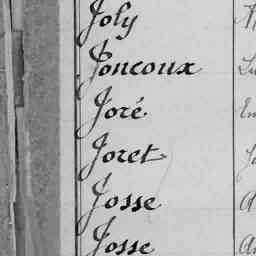 Joly
Joncoux
Joré
Joret
Josse
Josse